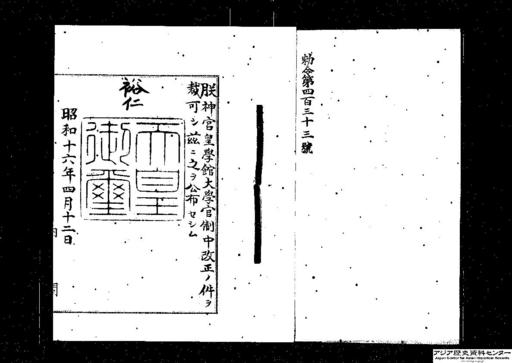 勅令第四百三十三號
朕神宮皇學館大學官制中改正ノ件ヲ
裁可シ茲ニ之ヲ公布セシム
裕仁
天皇御璽
昭和十六年四月十二日
アジア歴史資料センター
Japan Center for Asian Historical Records